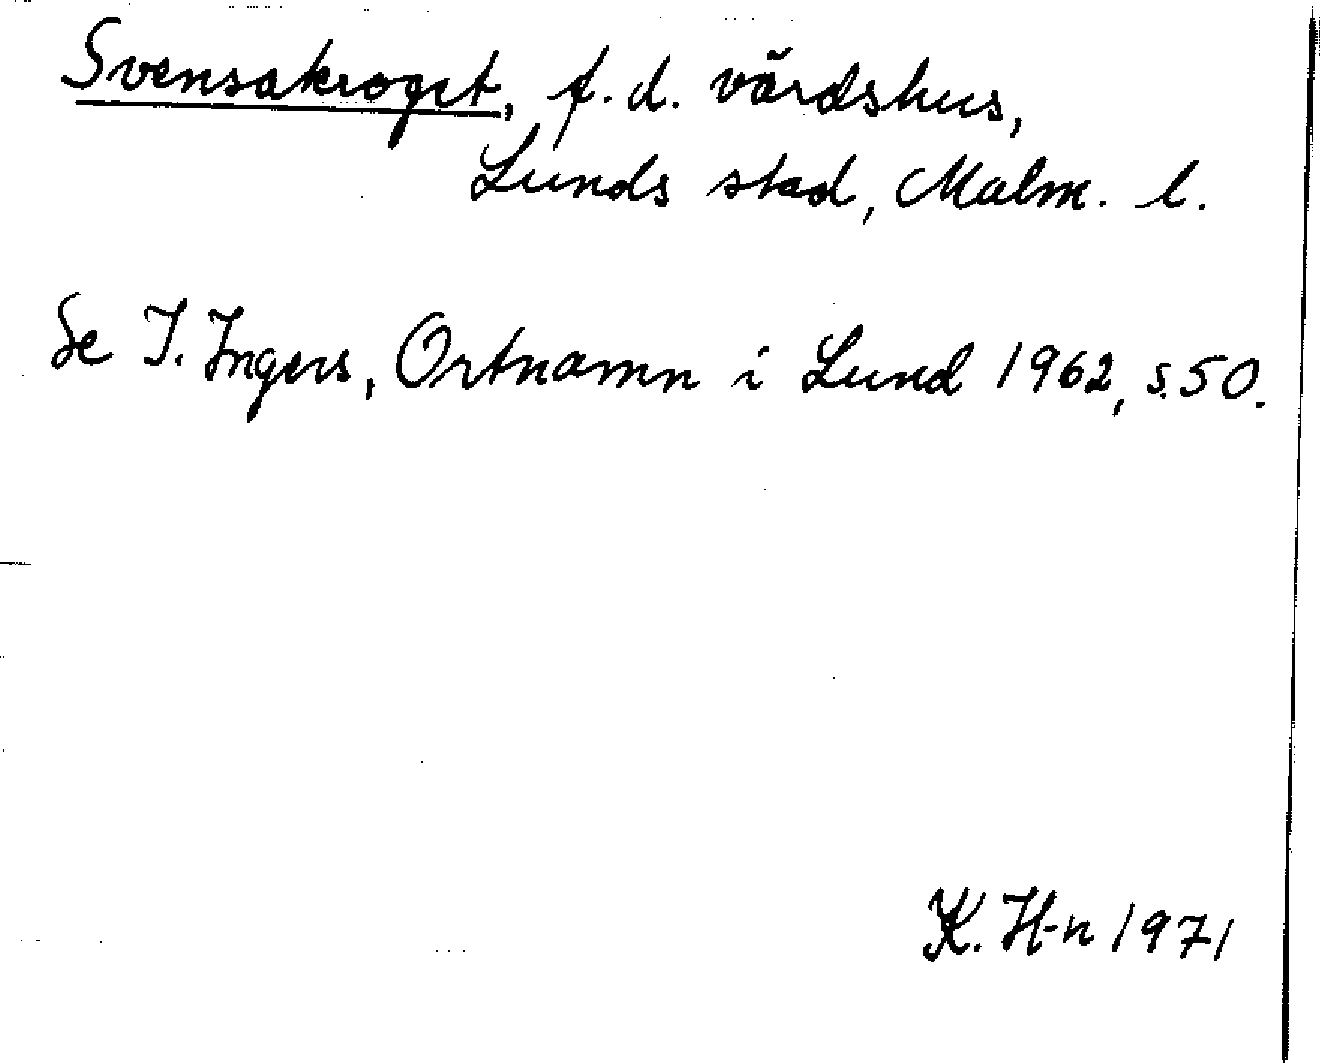 Svensakroget, f.d. värdshus,
Lunds stad, Malm. l.
Se I. Ingers, Ortnamn i Lund 1962, s. 50.
K. H-n 1971